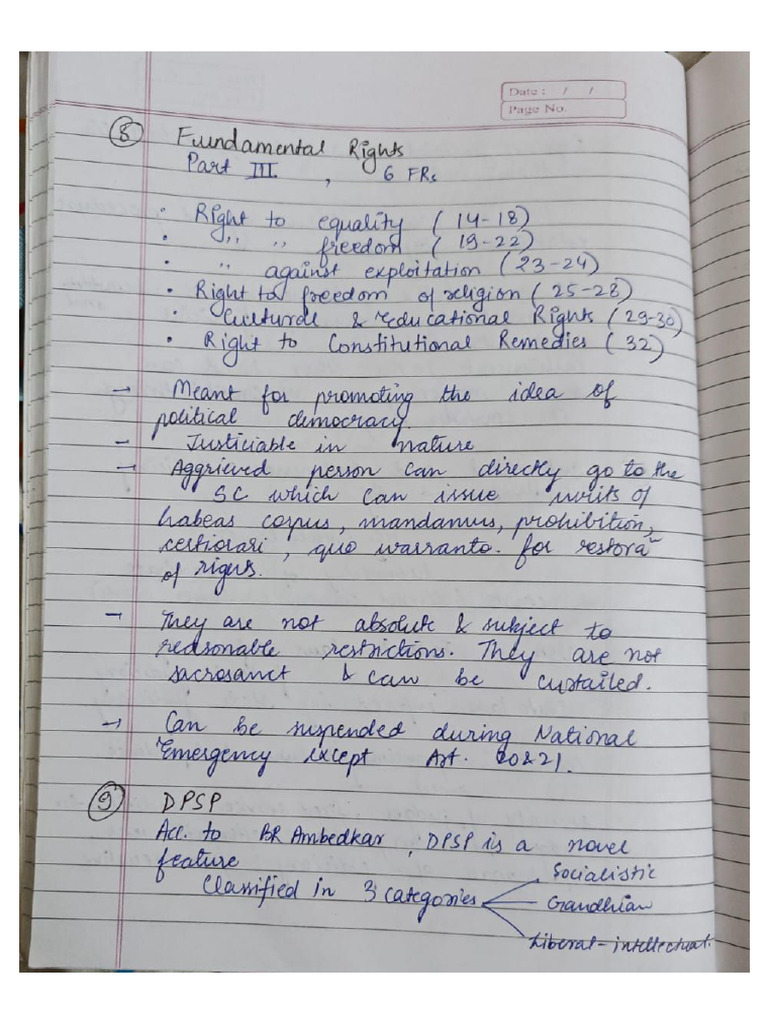 Date : / /
Page No.
⑧ Fundamental Rights
Part III , 6 FRs
• Right to equality (14-18)
• ,, ,, freedom (19-22)
• ,, against exploitation (23-24)
• Right to freedom of religion (25-28)
• Cultural & Educational Rights (29-30)
• Right to Constitutional Remedies (32)
→ Meant for promoting the idea of
political democracy.
→ Justiciable in nature
→ Aggrieved person can directly go to the
SC which can issue writs of
habeas corpus, mandamus, prohibition,
certiorari, quo warranto. for restora~
of rights.
→ They are not absolute & subject to
reasonable restrictions. They are not
sacrosanct & can be curtailed.
→ Can be suspended during National
Emergency except Art. 20&21.
⑨ DPSP
Acc. to BR Ambedkar, DPSP is a novel
feature
Socialistic
Classified in 3 categories Gandhian
Liberal-intellectual.